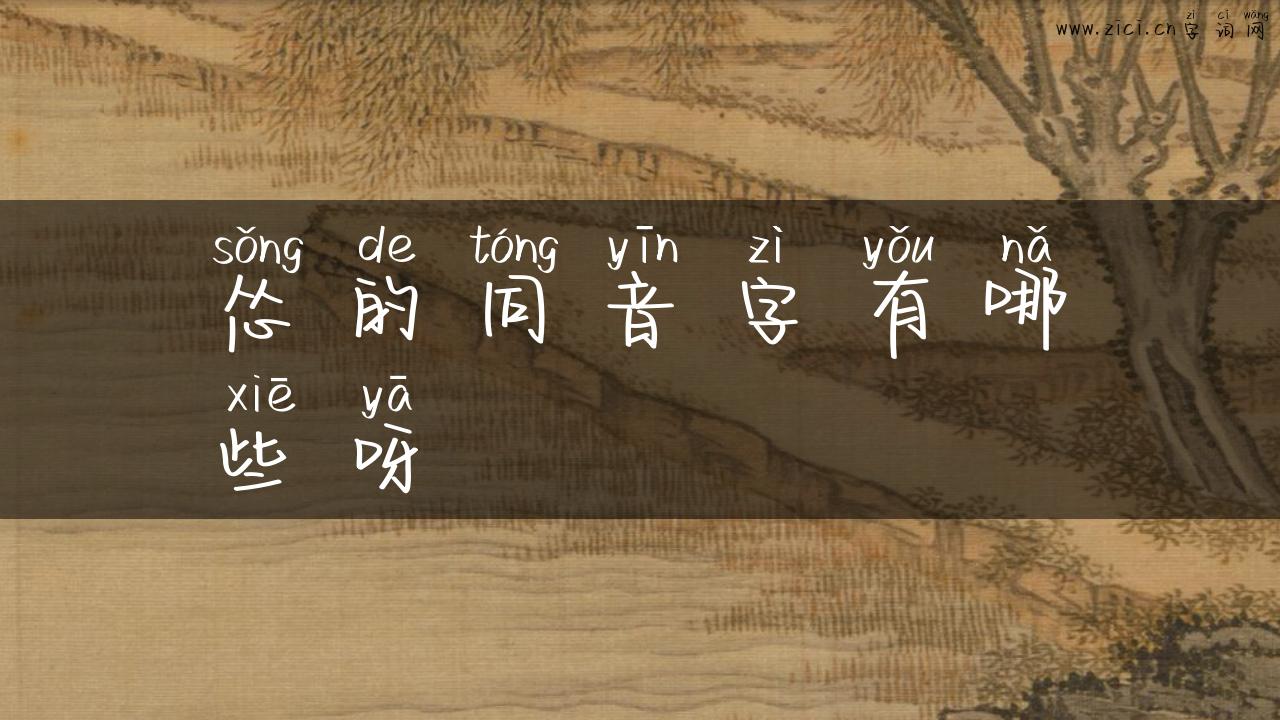 zì cí wǎng
www.zici.cn字词网
sǒng de tóng yīn zì yǒu nǎ
怂的同音字有哪
xiē yā
些呀